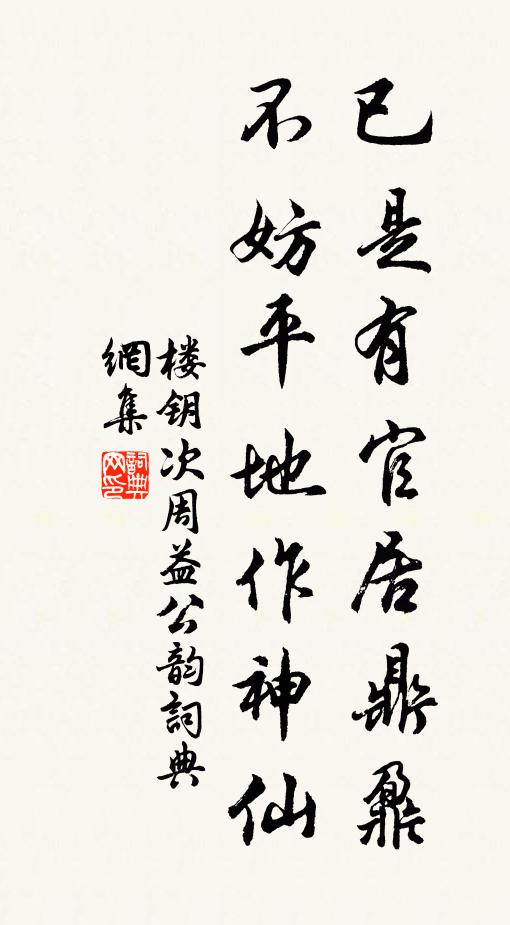 已是有官居鼎鼐
不妨平地作神仙
楼钥次周益公韵詞典
網集
詞典
网印